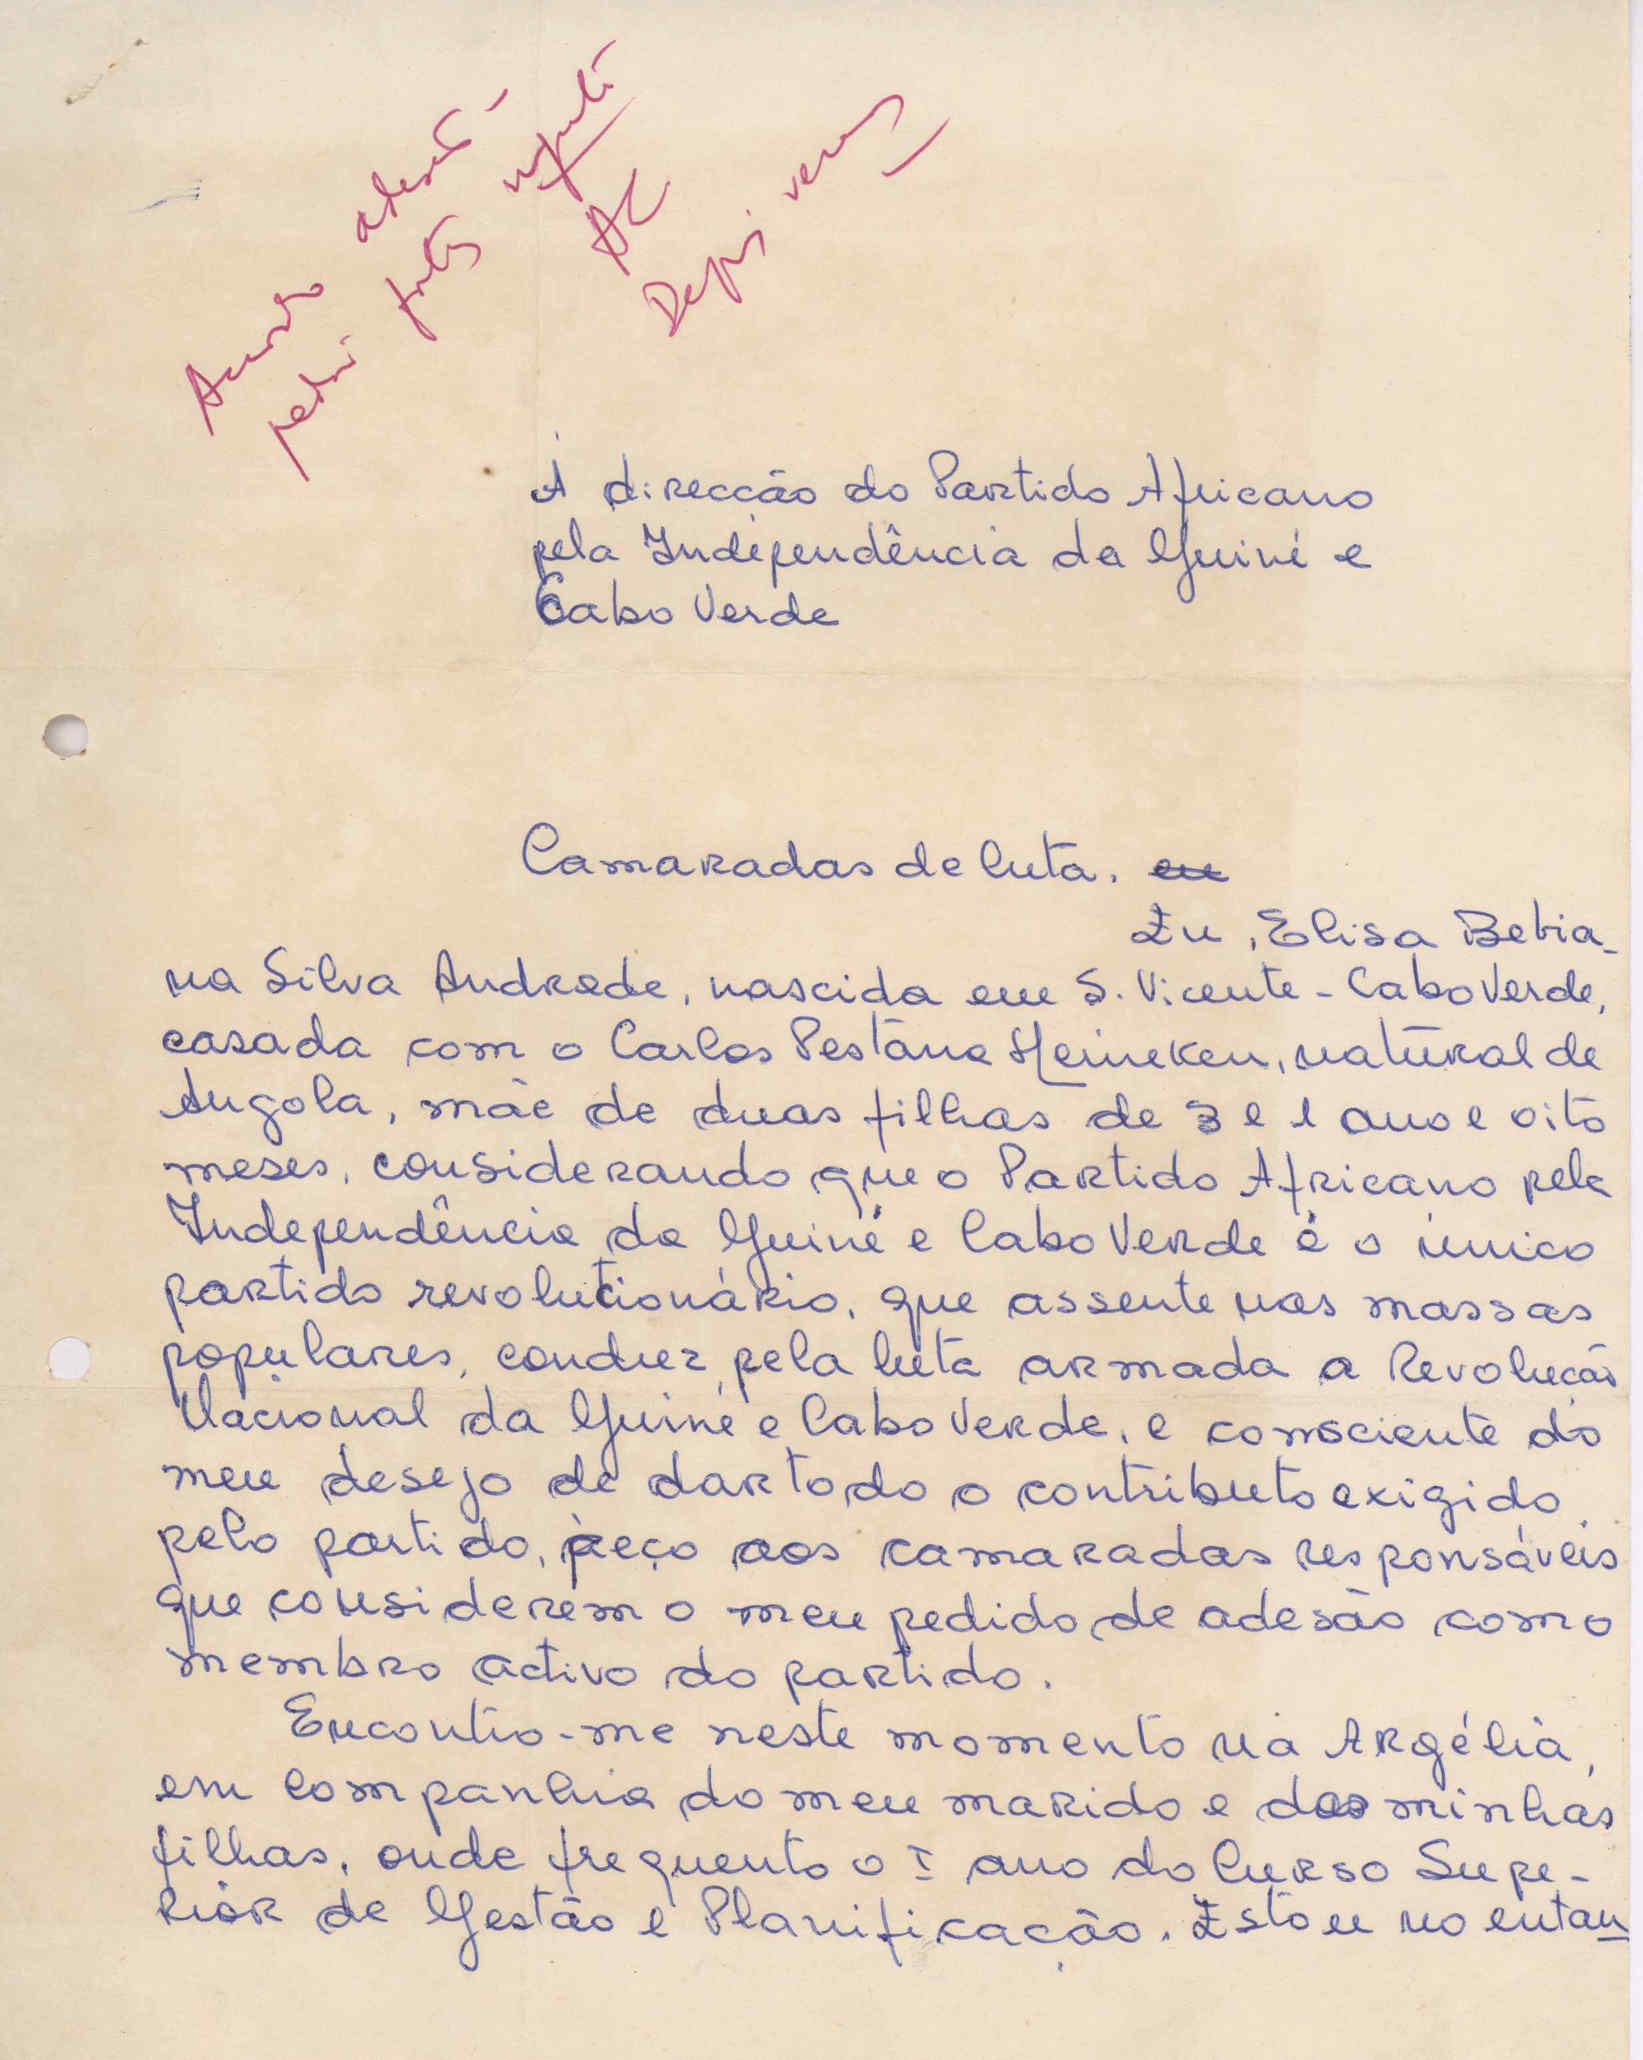 AC
Depois veremos
À direcção do Partido Africano
pela Independência da Guiné e
Cabo Verde
Camaradas de luta. eu
Eu, Elisa Bebia-
na Silva Andrade, nascida em S. Vicente - Cabo Verde,
casada com o Carlos Pestana Heineken, natural de
Angola, mãe de duas filhas de 3 e 1 ano e oito
meses, considerando que o Partido Africano pela
Independência da Guiné e Cabo Verde é o único
partido revolucionário, que assente nas massas
populares, conduz, pela luta armada a Revolução
Nacional da Guiné e Cabo Verde, e consciente do
meu desejo de dar todo o contributo exigido
pelo partido, peço aos camaradas responsáveis
que considerem o meu pedido de adesão como
membro activo do partido.
Encontro-me neste momento na Argélia,
em companhia do meu marido e das minhas
filhas, onde frequento o I ano do Curso Supe-
rior de Gestão e Planificação. Estou no entan